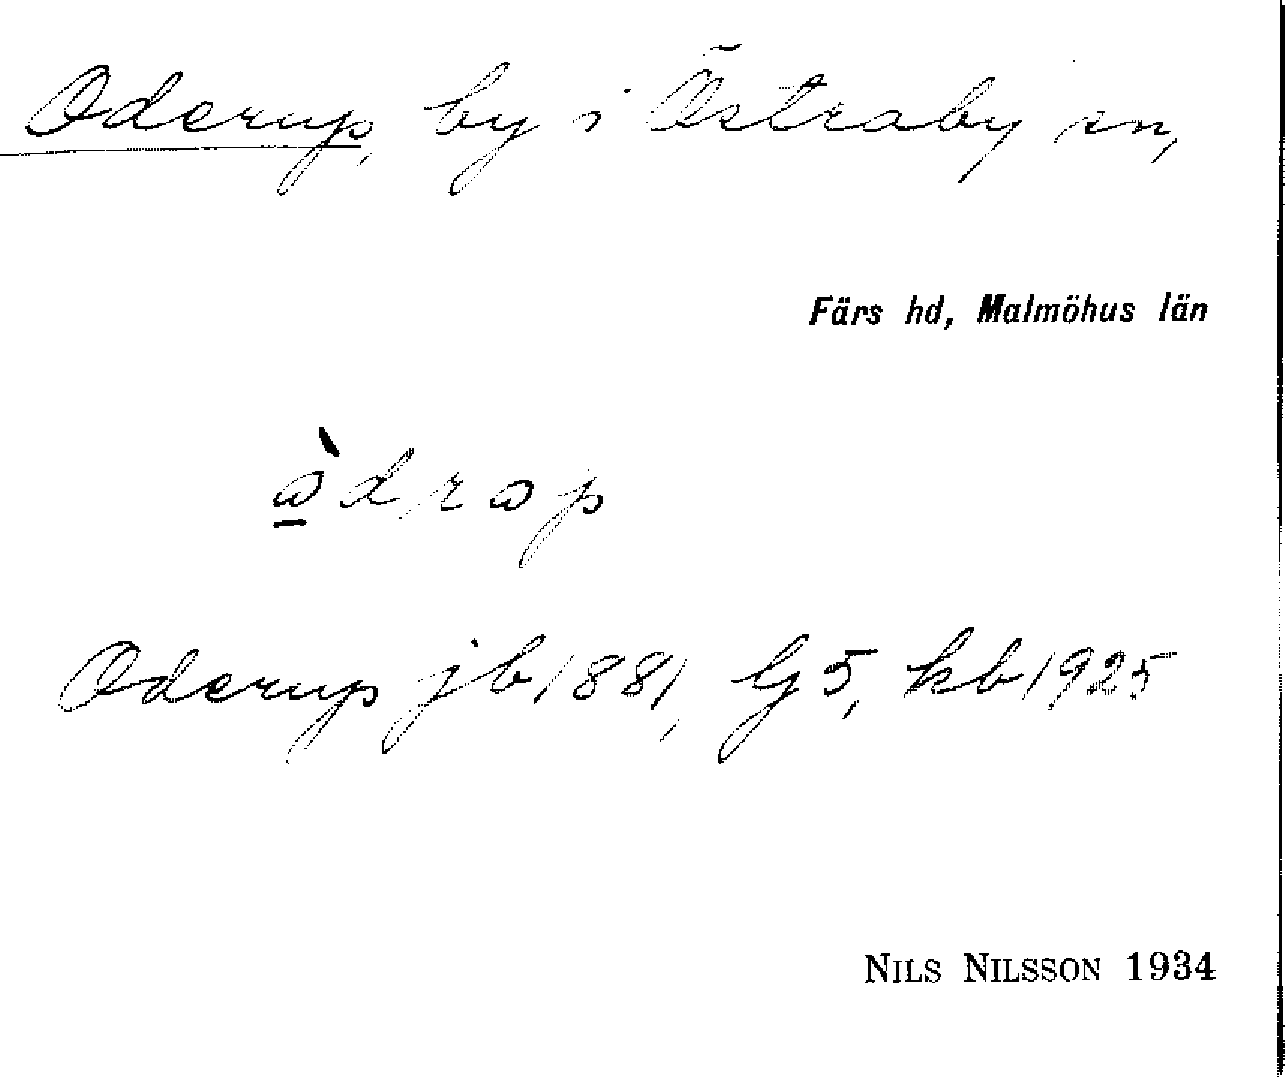 Oderup, by i Östraby sn,
Färs hd, Malmöhus län
ὰdrɷp
Oderup jb 1881, G5, kb 1925
NILS NILSSON 1934